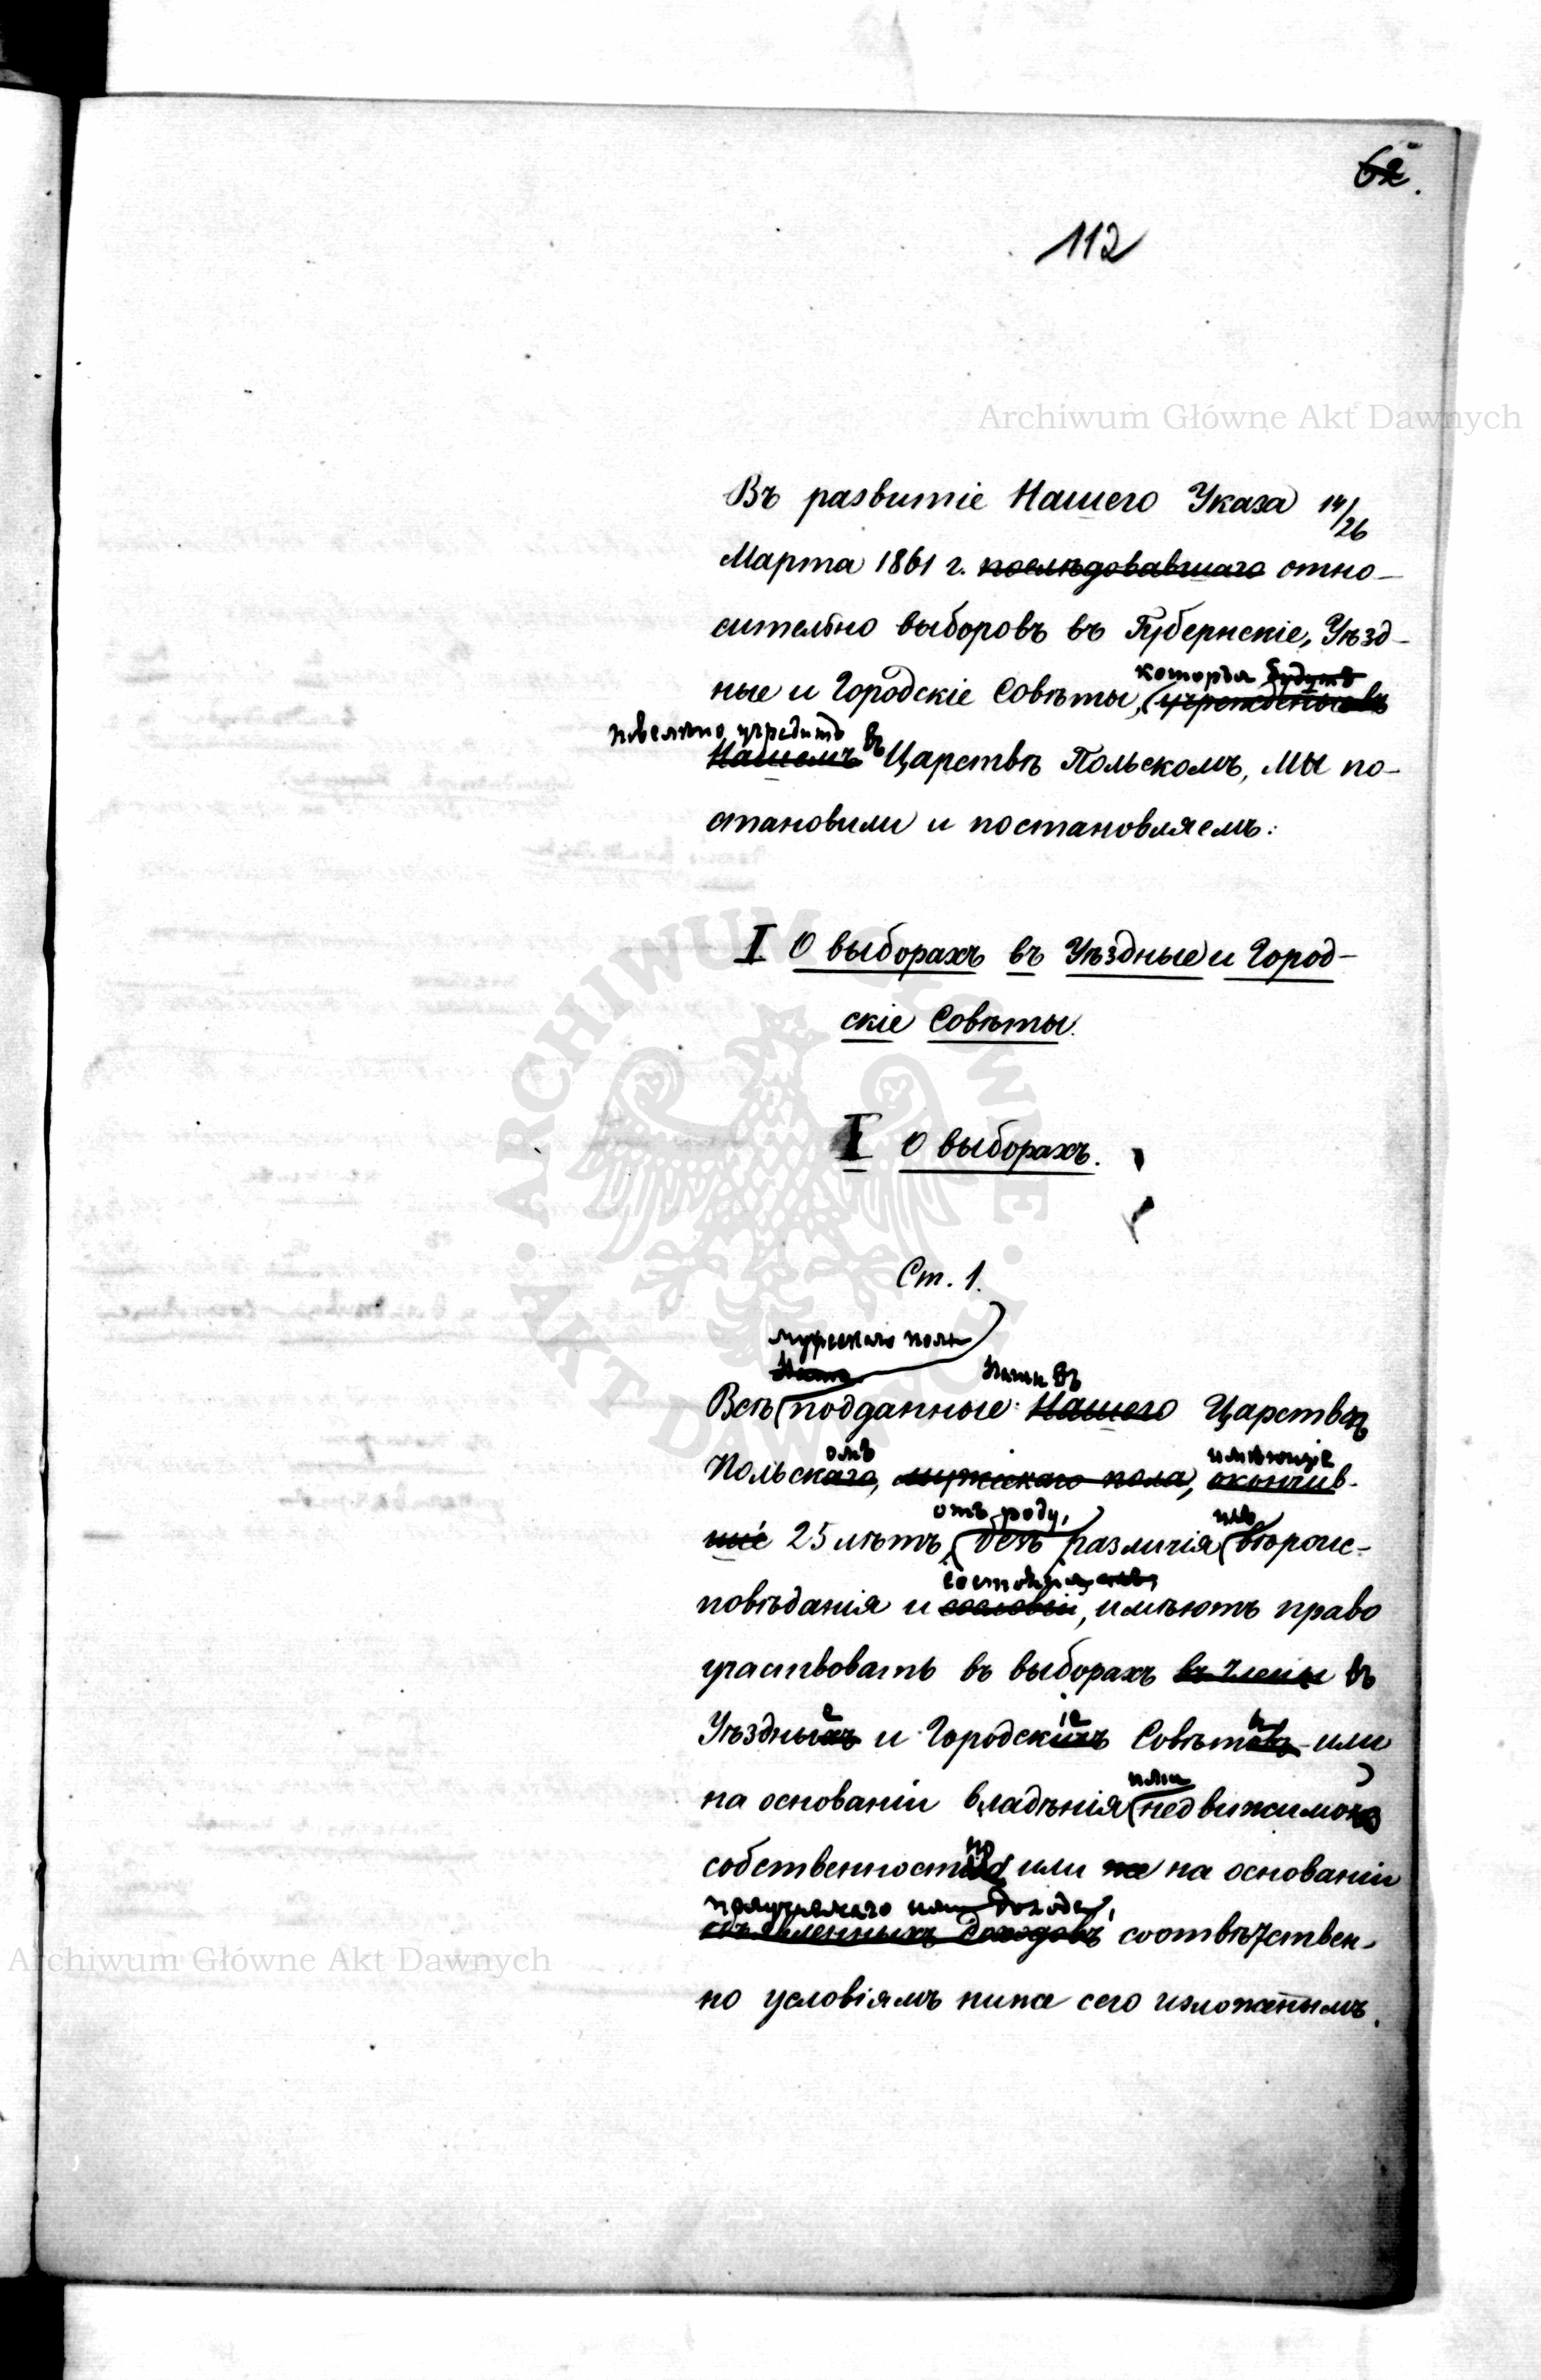 62.
112
Archiwum Główne Akt Dawnych
Въ развитіе Нашего Указа 14/26
Марта 1861 г. послѣдовавшаго отно-
сительно выборовъ въ Губернскіе, Уѣзд-
которыя будутъ
ные и Городскіе Совѣты,
повелѣно учредить въ
Нашемъ Царствѣ Польскомъ, Мы по-
становили и постановляемъ:
I О выборахъ въ Уѣздные и Город-
скіе Совѣты.
I О выборахъ.
Ст. 1.
мужескаго пола
Наши въ
Всѣ подданные Нашего Царствѣ
омъ имѣющіе
Польскаго, мужескаго пола, окончив-
отъ роду,
шіе 25 лѣтъ, безъ различія вѣроис-
состоянія
повѣданія и сословій, имѣютъ право
участвовать въ выборахъ въ члены въ
е іе ы
Уѣздныхъ и Городскихъ Совѣтовъ или
на основаніи владѣнія недвижимою
собственностью или же на основаніи
получаемаго ими дохода,
доходовъ соотвѣтствен-
но условіямъ ниже сего изложенымъ.
Archiwum Główne Akt Dawnych
ARCHIWUM GŁÓWNE AKT DAWNYCH